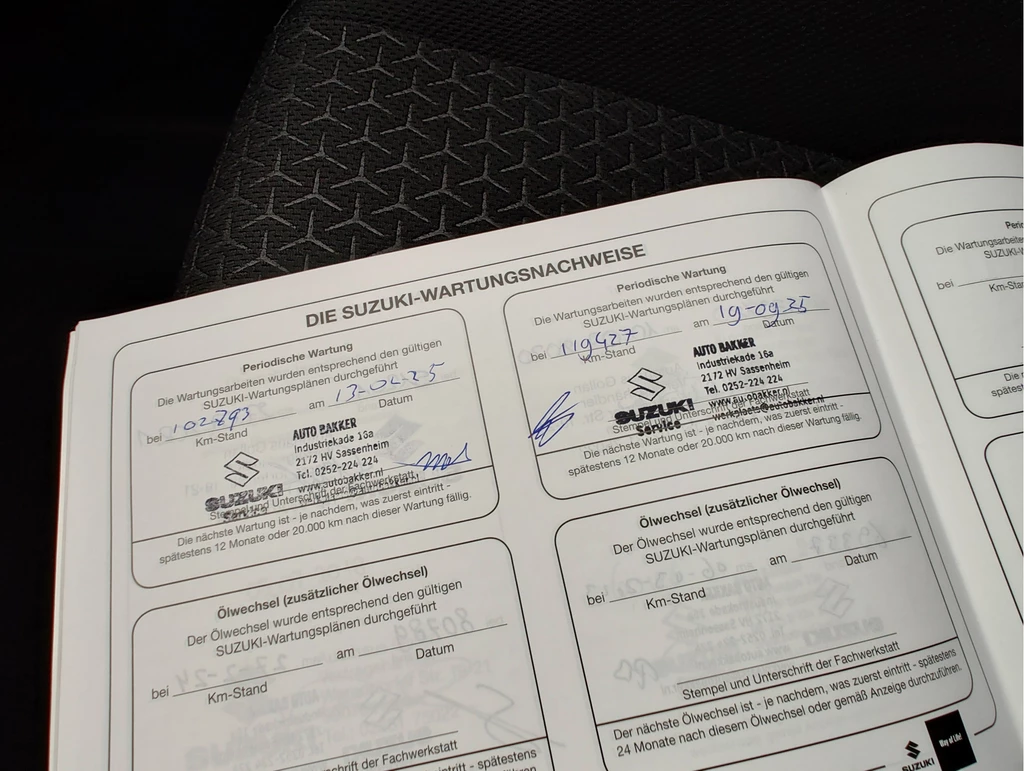 DIE SUZUKI-WARTUNGSNACHWEISE
Periodische Wartung
Die Wartungsarbeiten wurden entsprechend den gültigen
SUZUKI-Wartungsplänen durchgeführt
bei 102793 am 13-02-25
Km-Stand Datum
AUTO BAKKER
Industriekade 16a
2172 HV Sassenheim
Tel. 0252-224 224
www.autobakker.nl
SUZUKI
Service
Stempel und Unterschrift der Fachwerkstatt
Die nächste Wartung ist - je nachdem, was zuerst eintritt -
spätestens 12 Monate oder 20.000 km nach dieser Wartung fällig.
Periodische Wartung
Die Wartungsarbeiten wurden entsprechend den gültigen
SUZUKI-Wartungsplänen durchgeführt
bei 119427 am 19-09-25
Km-Stand Datum
AUTO BAKKER
Industriekade 16a
2172 HV Sassenheim
Tel. 0252-224 224
www.autobakker.nl
werkplaats@autobakker.nl
SUZUKI
Service
Stempel und Unterschrift der Fachwerkstatt
Die nächste Wartung ist - je nachdem, was zuerst eintritt -
spätestens 12 Monate oder 20.000 km nach dieser Wartung fällig.
Ölwechsel (zusätzlicher Ölwechsel)
Der Ölwechsel wurde entsprechend den gültigen
SUZUKI-Wartungsplänen durchgeführt
bei am
Km-Stand Datum
chrift der Fachwerkstatt
eintritt - spätestens
Ölwechsel (zusätzlicher Ölwechsel)
Der Ölwechsel wurde entsprechend den gültigen
SUZUKI-Wartungsplänen durchgeführt
bei am
Km-Stand Datum
Stempel und Unterschrift der Fachwerkstatt
Der nächste Ölwechsel ist - je nachdem, was zuerst eintritt - spätestens
24 Monate nach diesem Ölwechsel oder gemäß Anzeige durchzuführen.
SUZUKI
Way of Life!
Die Wartungsarbeite
SUZUKI-W
bei
Km-Sta
Die n
spätestens